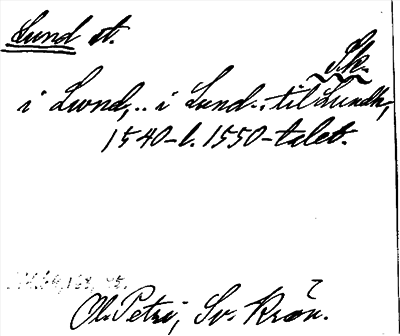 Lund st.
Sk.
i Lwnd, .. i Lund .. til Lundh,
1540- l. 1550-talet.
Ol. Petri, Sv. Krön.